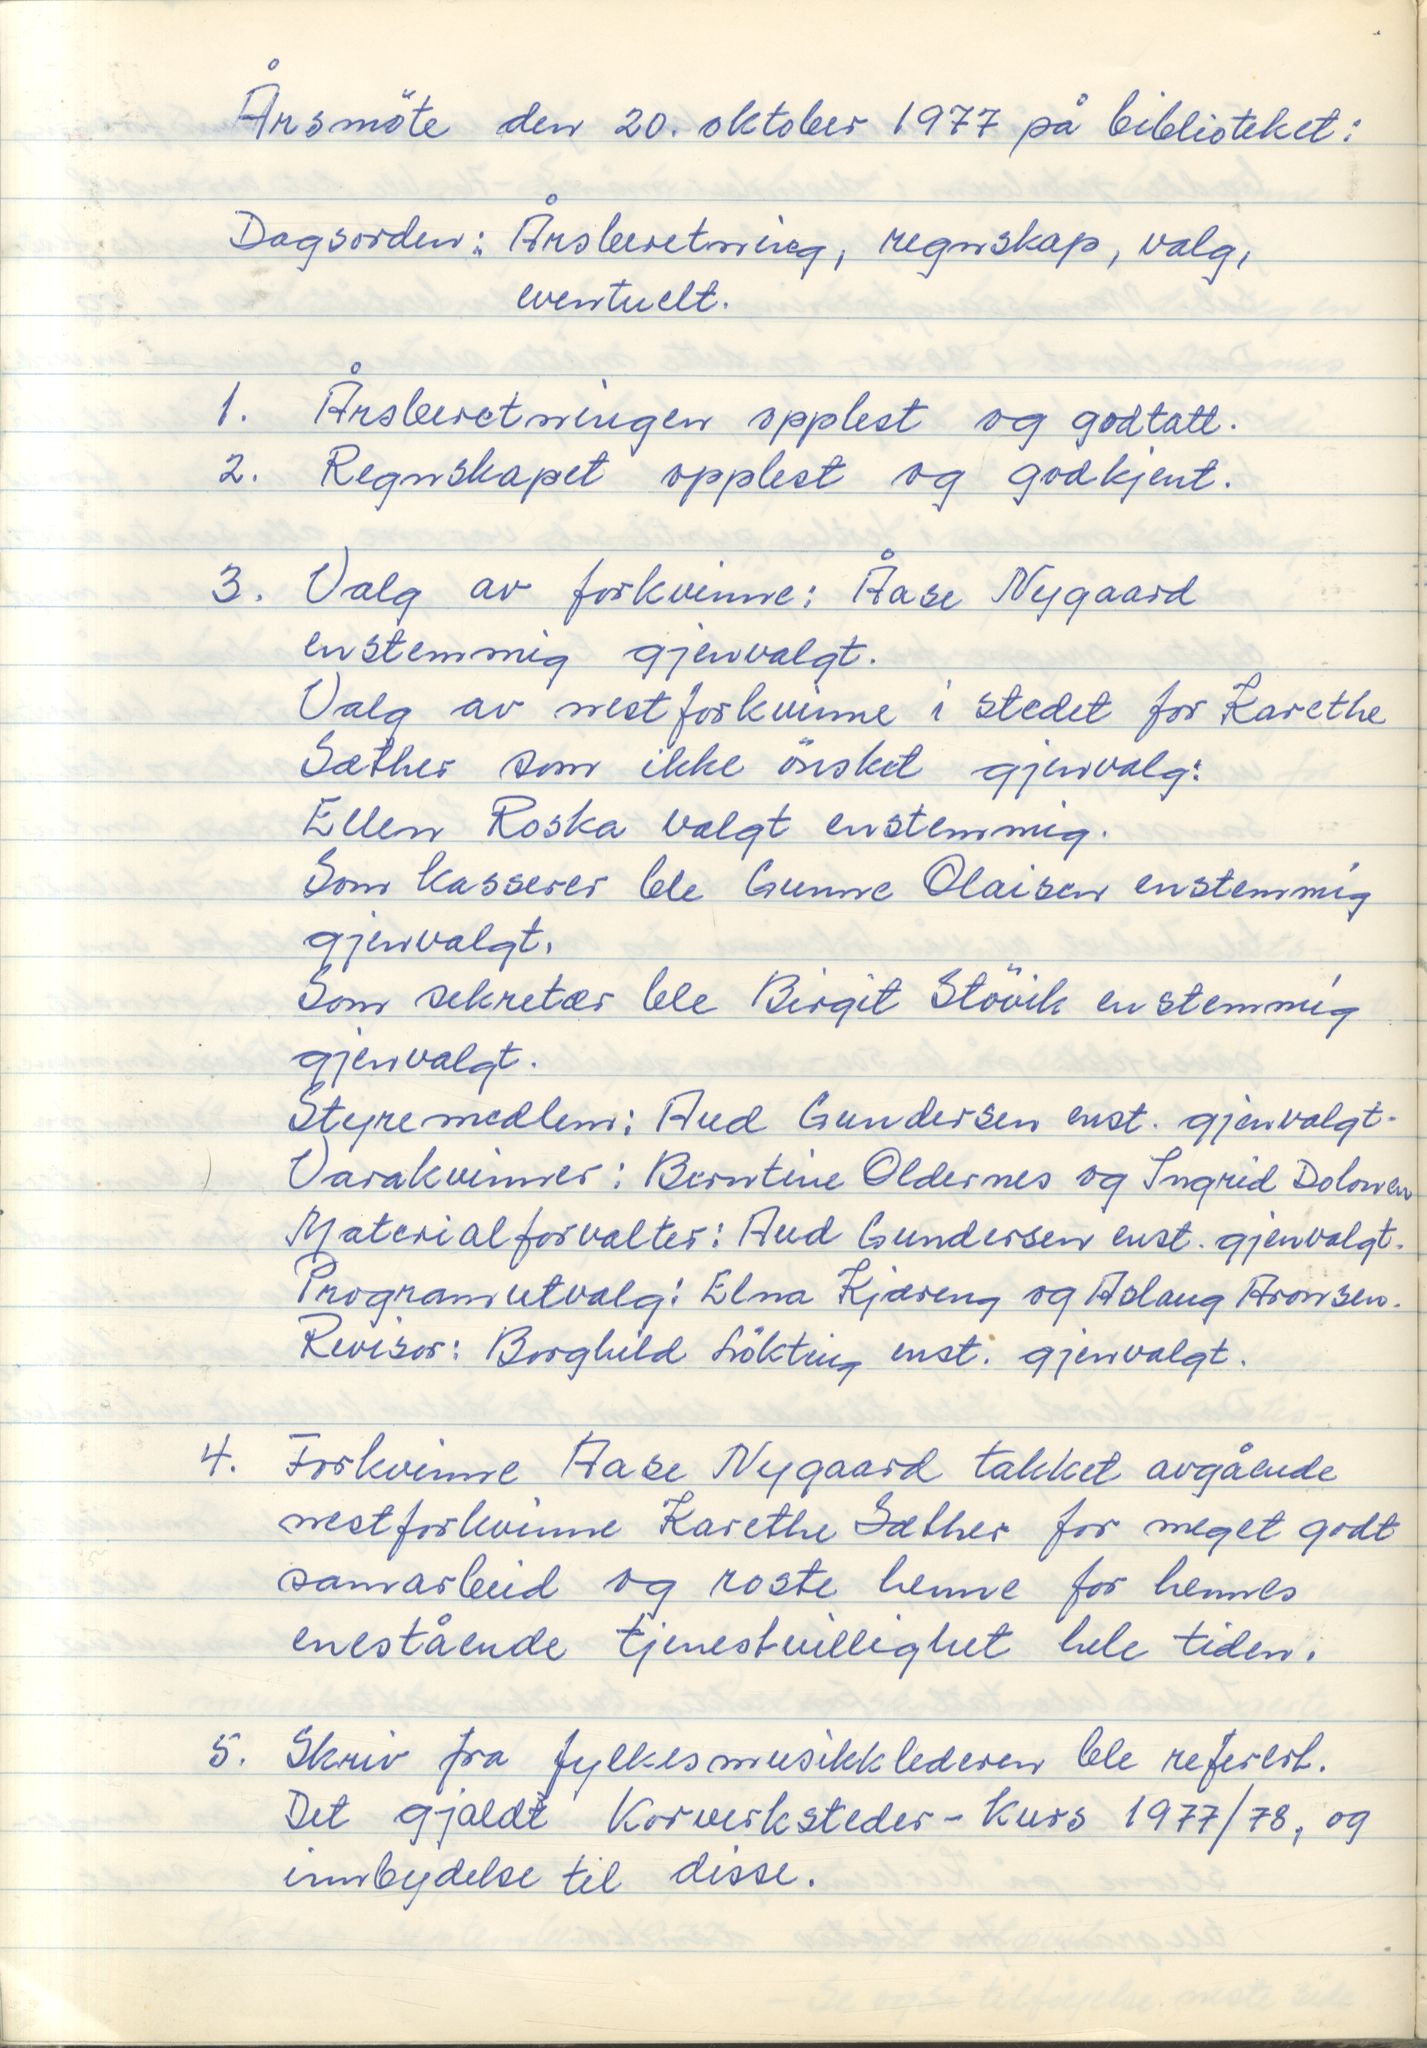 Årsmöte den 20. oktober 1977 på biblioteket:
Dagsorden: Årsberetning, regnskap, valg,
eventuelt.
1. Årsberetningen opplest og godtatt.
2. Regnskapet opplest og godkjent.
3. Valg av forkvinne: Åase Nygaard
enstemmig gjenvalgt.
Valg av nestforkvinne i stedet for Karethe
Sæther som ikke önsket gjenvalg:
Ellen Roska valgt enstemmig.
Som kasserer ble Gunne Olaisen enstemmig
gjenvalgt.
Som sekretær ble Birgit Stövik enstemmig
gjenvalgt.
Styremedlem: Aud Gundersen enst. gjenvalgt.
Varakvinner: Berntine Oldernes og Ingrid Dolonen
Materialforvalter: Aud Gundersen enst. gjenvalgt.
Programutvalg: Elna Kjæreng og Aslaug Aronsen.
Revisor: Borghild Lökting enst. gjenvalgt.
4. Forkvinne Aase Nygaard takket avgående
nestforkvinne Karethe Sæther for meget godt
samarbeid og roste henne for hennes
enestående tjenestvillighet hele tiden.
5. Skriv fra fylkesmusikklederen ble referert.
Det gjaldt Korverksteder-kurs 1977/78, og
innbydelse til disse.